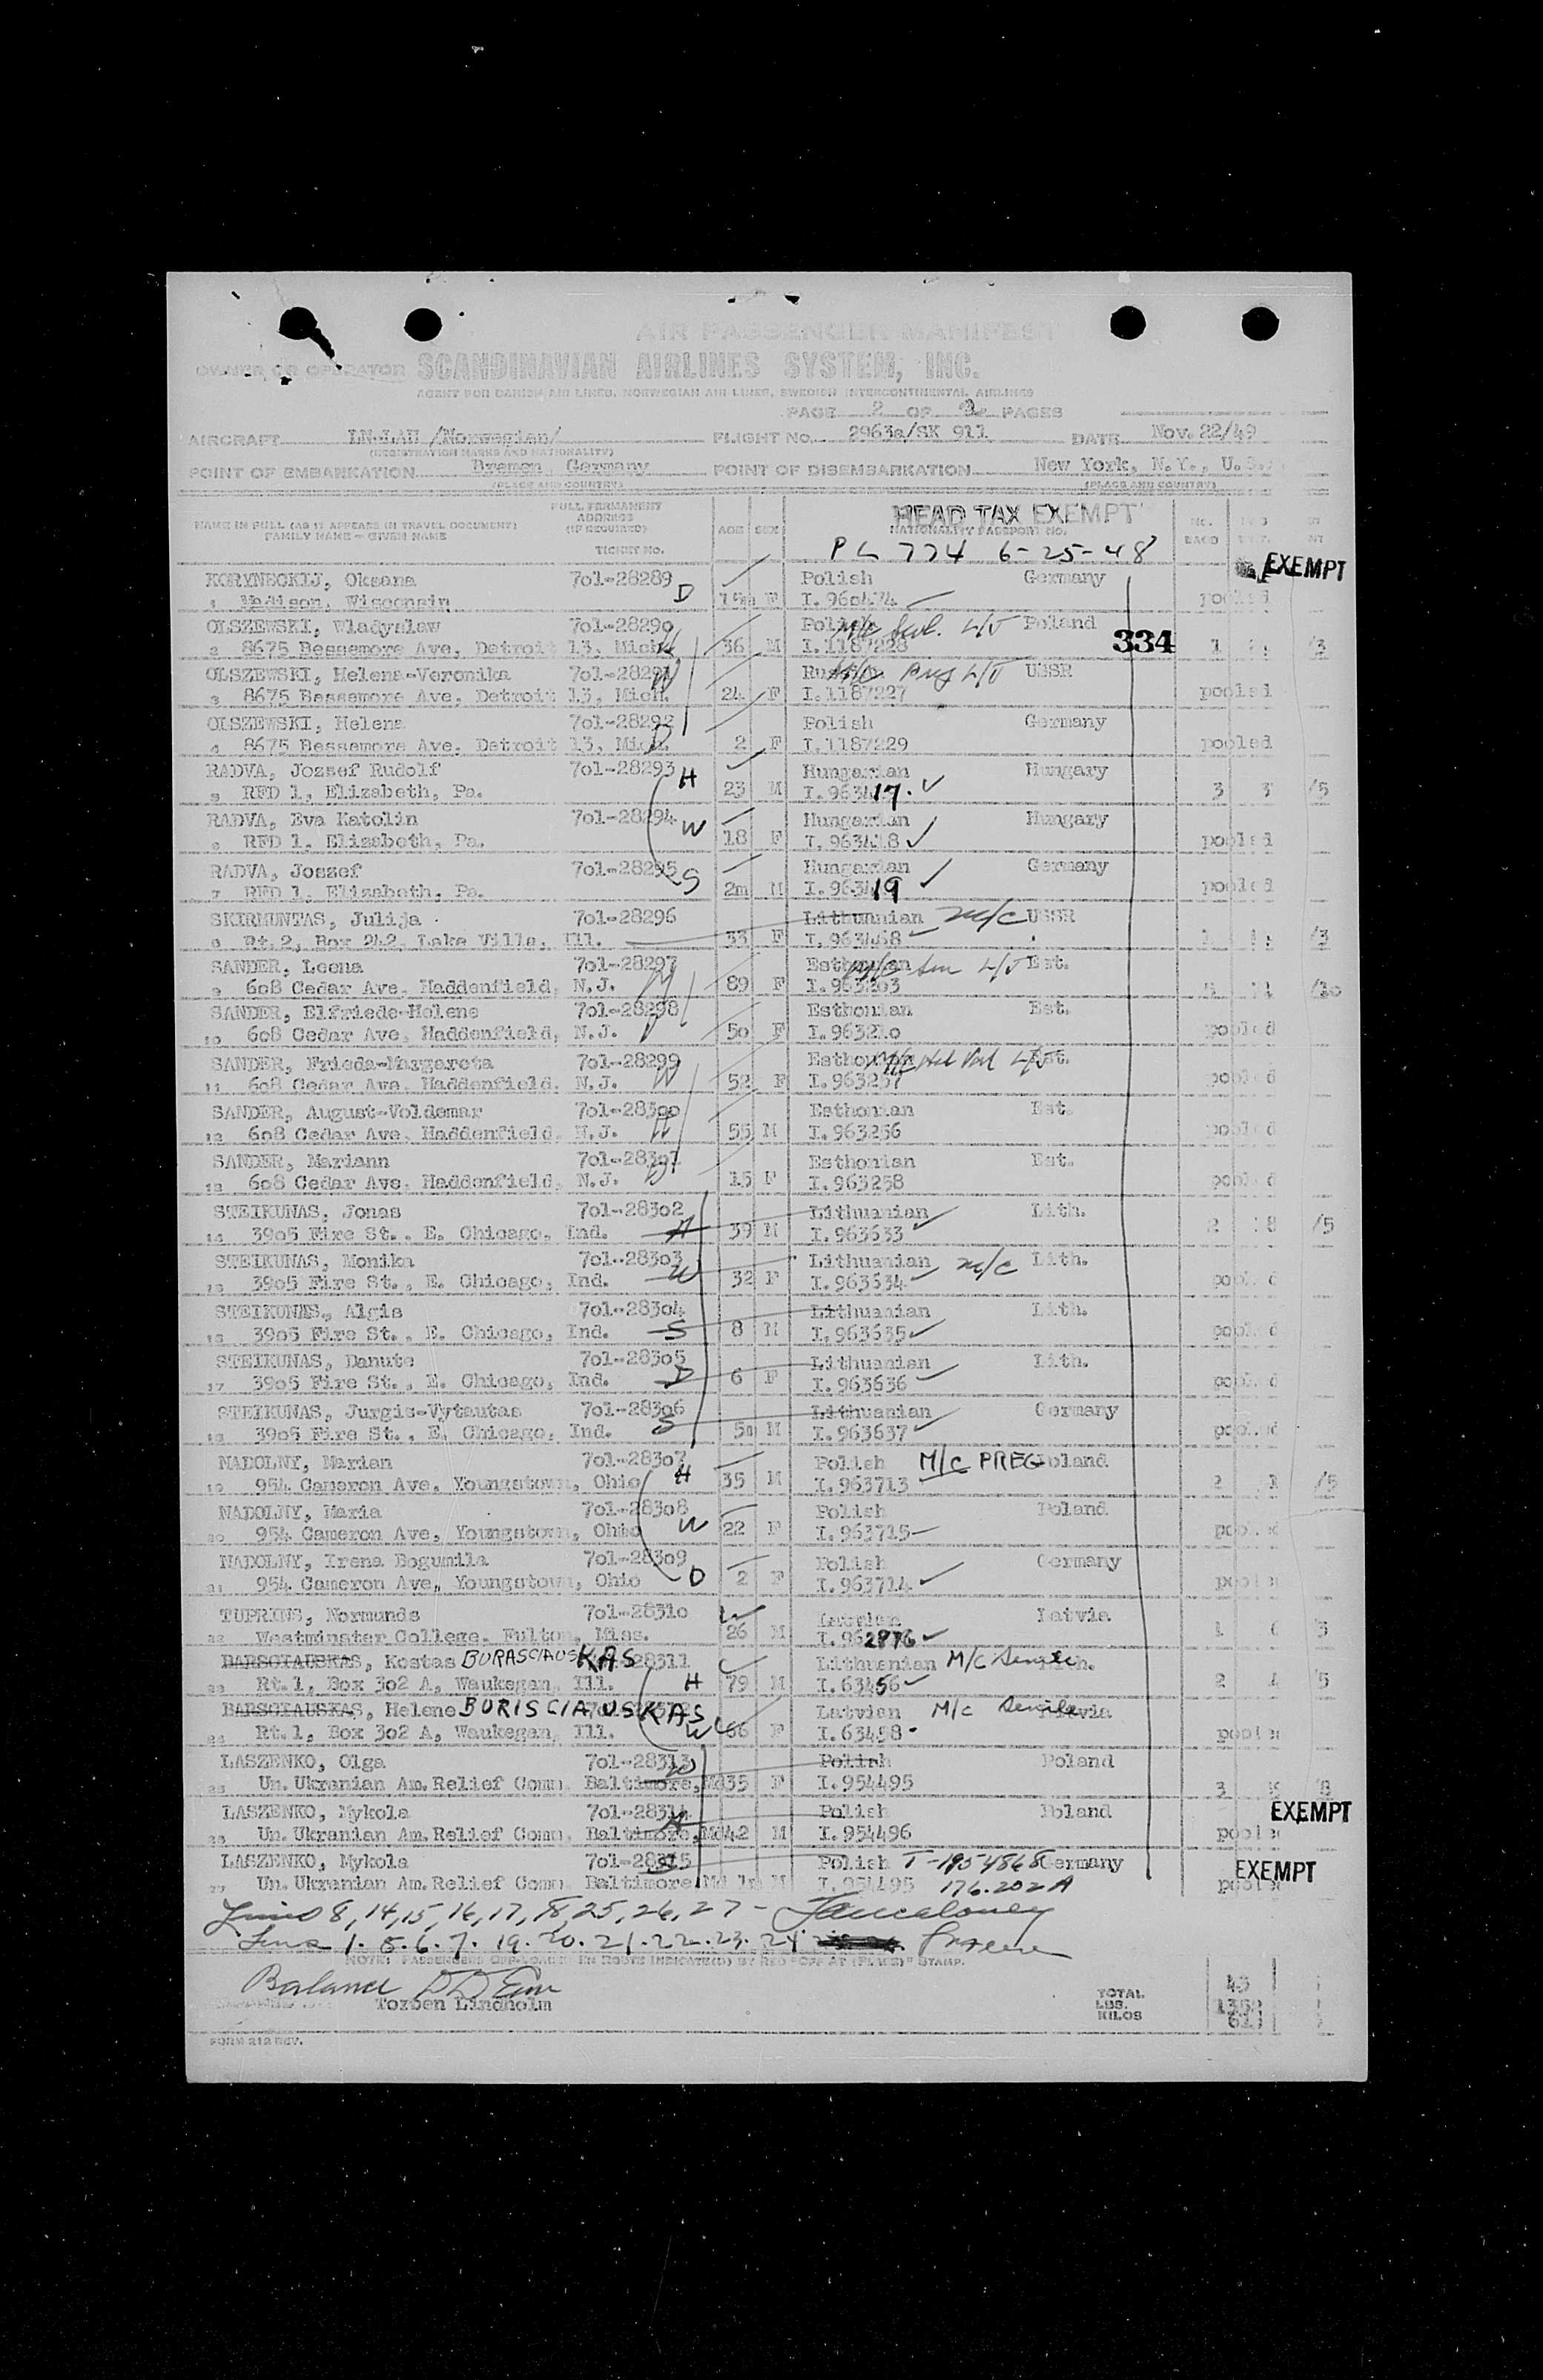 AIR PASSENGER MANIFEST
OWNER OR OPERATOR SCANDINAVIAN AIRLINES SYSTEM, INC.
AGENT FOR DANISH AIR LINES, NORWEGIAN AIR LINES, SWEDISH INTERCONTINENTAL AIRLINES
PAGE 2 OF PAGES
AIRCRAFT LN-LAH /Norwegian/ FLIGHT No. 2963a/SK 911 DATE Nov. 22/49
(REGISTRATION MARKS AND NATIONALITY)
POINT OF EMBARKATION Bremen, Germany POINT OF DISEMBARKATION New York, N.Y., U.S.
(PLACE AND COUNTRY) (PLACE AND COUNTRY)
NAME IN FULL (AS IT APPEARS IN TRAVEL DOCUMENT) FAMILY NAME - GIVEN NAME FULL PERMANENT ADDRESS (IF REQUIRED) TICKET NO. AGE SEX NATIONALITY PASSPORT NO. No. BAGS
HEAD TAX EXEMPT
PL 774 6-25-48
EXEMPT
KORYNECKIJ, Oksana 7o1-28289 Polish Germany
1 Madison, Wisconsin D F I.960474 pooled
OLSZEWSKI, Wladyslaw 7o1-28290 Poland 334
2 8675 Bessemore Ave, Detroit 13, Mich. 36 M I.1187228 1 /3
OLSZEWSKI, Helena-Veronika 7o1-28291 USSR
3 8675 Bessemore Ave, Detroit 13, Mich. 24 F I.1187227 pooled
OLSZEWSKI, Helena 7o1-28292 Polish Germany
4 8675 Bessemore Ave, Detroit 13, Mich. D 2 F I.1187229 pooled
RADVA, Jozsef Rudolf 7o1-28293 H Hungarian Hungary
5 RFD 1, Elizabeth, Pa. 23 M I.963417. 3 /5
RADVA, Eva Katolin 7o1-28294 W Hungarian Hungary
6 RFD 1, Elizabeth, Pa. 18 F I.963418 pooled
RADVA, Joszef 7o1-28295 S Hungarian Germany
7 RFD 1, Elizabeth, Pa. 2m M I.963419 pooled
SKIRMUNTAS, Julija 7o1-28296 Lithuanian M/C USSR
8 Rt.2, Box 242, Lake Villa, Ill. 33 F I.963468 /3
SANDER, Leena 7o1-28297 Est.
9 608 Cedar Ave, Haddenfield, N.J. M 89 F /10
SANDER, Elfriede-Helene 7o1-28298 Esthonian Est.
10 608 Cedar Ave, Haddenfield, N.J. 50 F I.963210 pooled
SANDER, Frieda-Margareta 7o1-28299 Est.
11 608 Cedar Ave, Haddenfield, N.J. W 52 F I.963257 pooled
SANDER, August-Voldemar 7o1-28300 Esthonian Est.
12 608 Cedar Ave, Haddenfield, N.J. H 55 M I.963256 pooled
SANDER, Mariann 7o1-28301 Esthonian Est.
13 608 Cedar Ave, Haddenfield, N.J. D 15 F I.963258 pooled
STEIKUNAS, Jonas 7o1-28302 Lithuanian Lith.
14 3905 Fire St., E. Chicago, Ind. H 39 M I.963633 2 /5
STEIKUNAS, Monika 7o1-28303 Lithuanian M/C Lith.
15 3905 Fire St., E. Chicago, Ind. W 32 F I.963634 pooled
STEIKUNAS, Algis 7o1-28304 Lithuanian Lith.
16 3905 Fire St., E. Chicago, Ind. S 8 M I.963635 pooled
STEIKUNAS, Danute 7o1-28305 Lithuanian Lith.
17 3905 Fire St., E. Chicago, Ind. D 6 F I.963636 pooled
STEIKUNAS, Jurgis-Vytautas 7o1-28306 Lithuanian Germany
18 3905 Fire St., E. Chicago, Ind. S M I.963637 pooled
NADOLNY, Marian 7o1-28307 Polish M/C PREG Poland
19 954 Cameron Ave, Youngstown, Ohio H 35 M I.963713 2 /5
NADOLNY, Maria 7o1-28308 Polish Poland
20 954 Cameron Ave, Youngstown, Ohio W 22 F I.963715 pooled
NADOLNY, Irena Bogumila 7o1-28309 Polish Germany
21 954 Cameron Ave, Youngstown, Ohio D 2 F I.963714 pooled
TUPRINS, Normunds 7o1-28310 Latvian Latvia
22 Westminster College, Fulton, Miss. 26 M I.962976 1 3
BARSCIAUSKAS, Kostas BURASCIAUSKAS 28311 Lithuanian M/C Senile Lith.
23 Rt.1, Box 302 A, Waukegan, Ill. H 79 M I.63456 2 5
BARSCIAUSKAS, Helene BURISCIAUSKAS Latvian M/C Senile Latvia
24 Rt.1, Box 302 A, Waukegan, Ill. W 66 F I.63458 pooled
LASZENKO, Olga 7o1-28313 Polish Poland
25 Un. Ukranian Am.Relief Comm. Baltimore, Md W 35 F I.954495 3 8
LASZENKO, Mykola 7o1-28314 Polish Poland EXEMPT
26 Un. Ukranian Am.Relief Comm. Baltimore, Md H 42 M I.954496 pooled
LASZENKO, Mykola 7o1-28315 Polish T-1954868 Germany EXEMPT
27 Un. Ukranian Am.Relief Comm. Baltimore Md S M I.954495 176.202A pooled
Lines 8, 14, 15, 16, 17, 18, 25, 26, 27 -
Lines 1. 5. 6. 7. 19. 20. 21. 22. 23. 24
NOTE: PASSENGERS OFF-LOADED EN ROUTE INDICATE(D) BY RED "OFF AT (PLACE)" STAMP.
Balance
Torben Lindholm
TOTAL 43
LBS.
KILOS
FORM 212 REV.